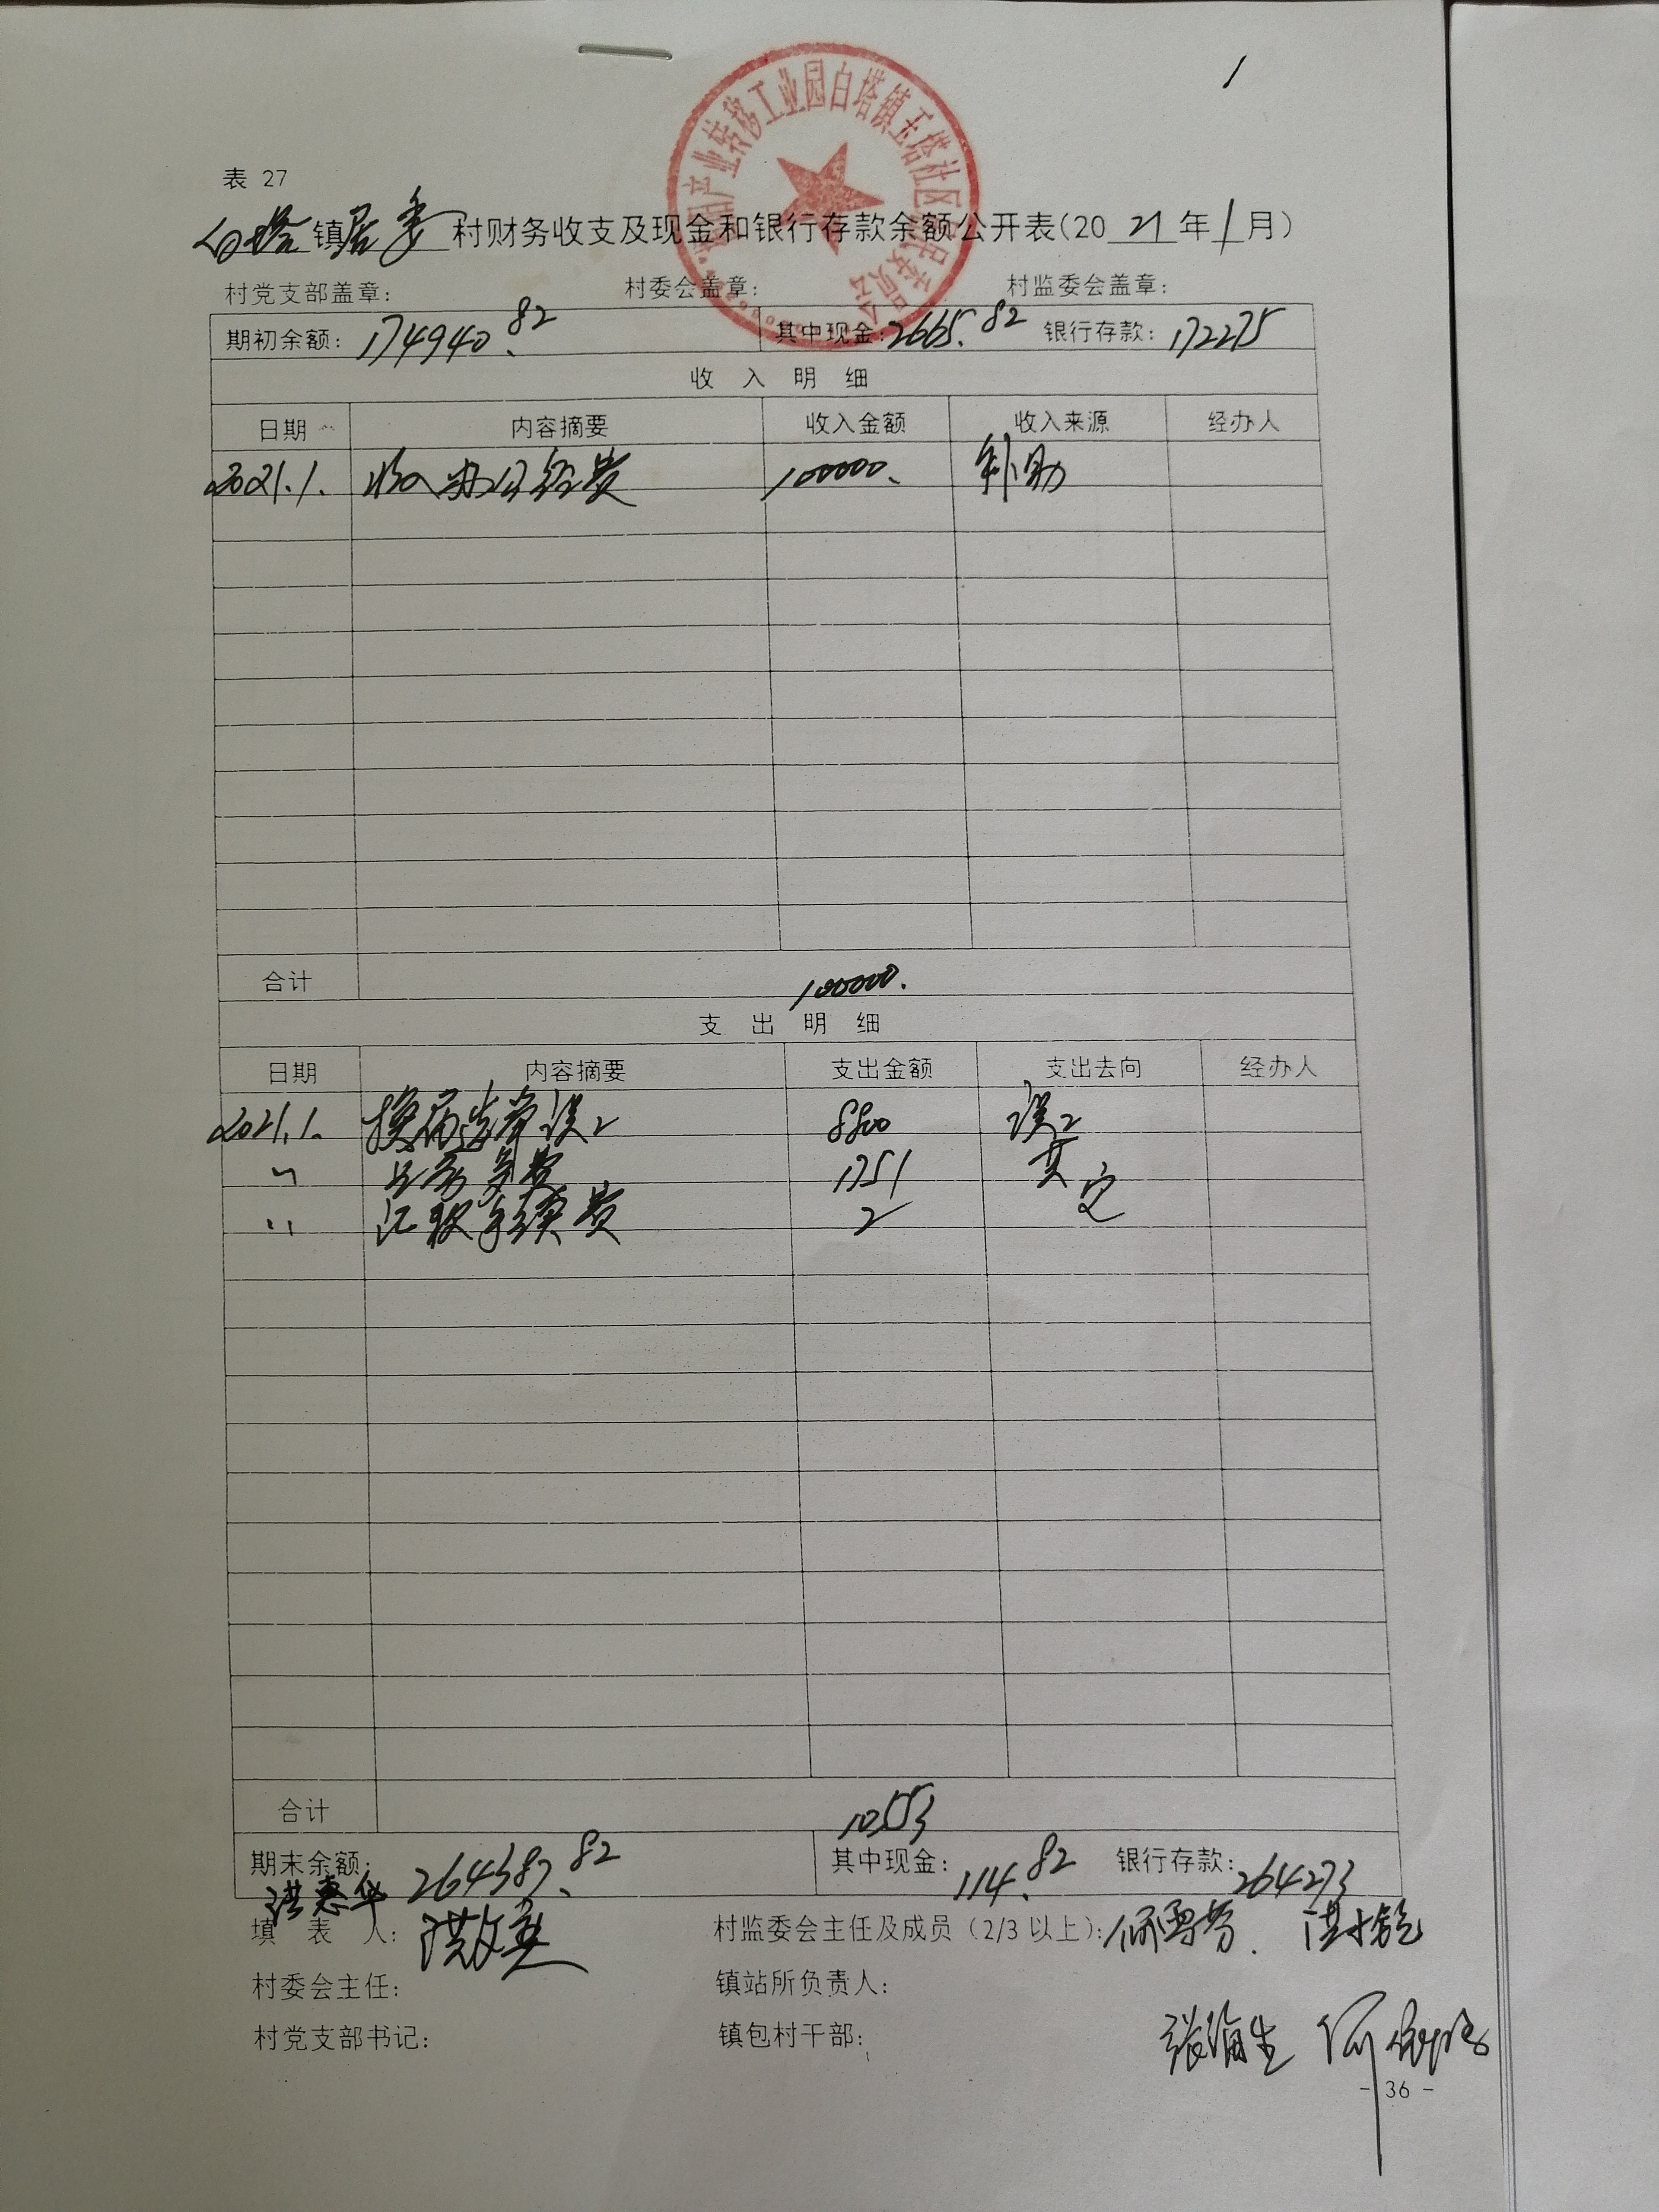 1
表 27
白塔镇居委村财务收支及现金和银行存款余额公开表(2021年1月)
产业转移工业园白塔镇玉塔社区居民委员会
村党支部盖章: 村委会盖章: 村监委会盖章:
期初余额: 174940.82 其中现金: 2665.82 银行存款: 172275
收 入 明 细
日期 内容摘要 收入金额 收入来源 经办人
2021.1. 收入办公经费 100000. 补助
合计 100000.
支 出 明 细
日期 内容摘要 支出金额 支出去向 经办人
2021.1. 换届选举误工 8800 误工
〃 费 1751 其
〃 汇款手续费 2 它
合计 10553
期末余额: 264387.82 其中现金: 114.82 银行存款: 264273
洪惠华
填 表 人: 洪 村监委会主任及成员(2/3以上):
村委会主任: 镇站所负责人:
村党支部书记: 镇包村干部: 张海生
- 36 -